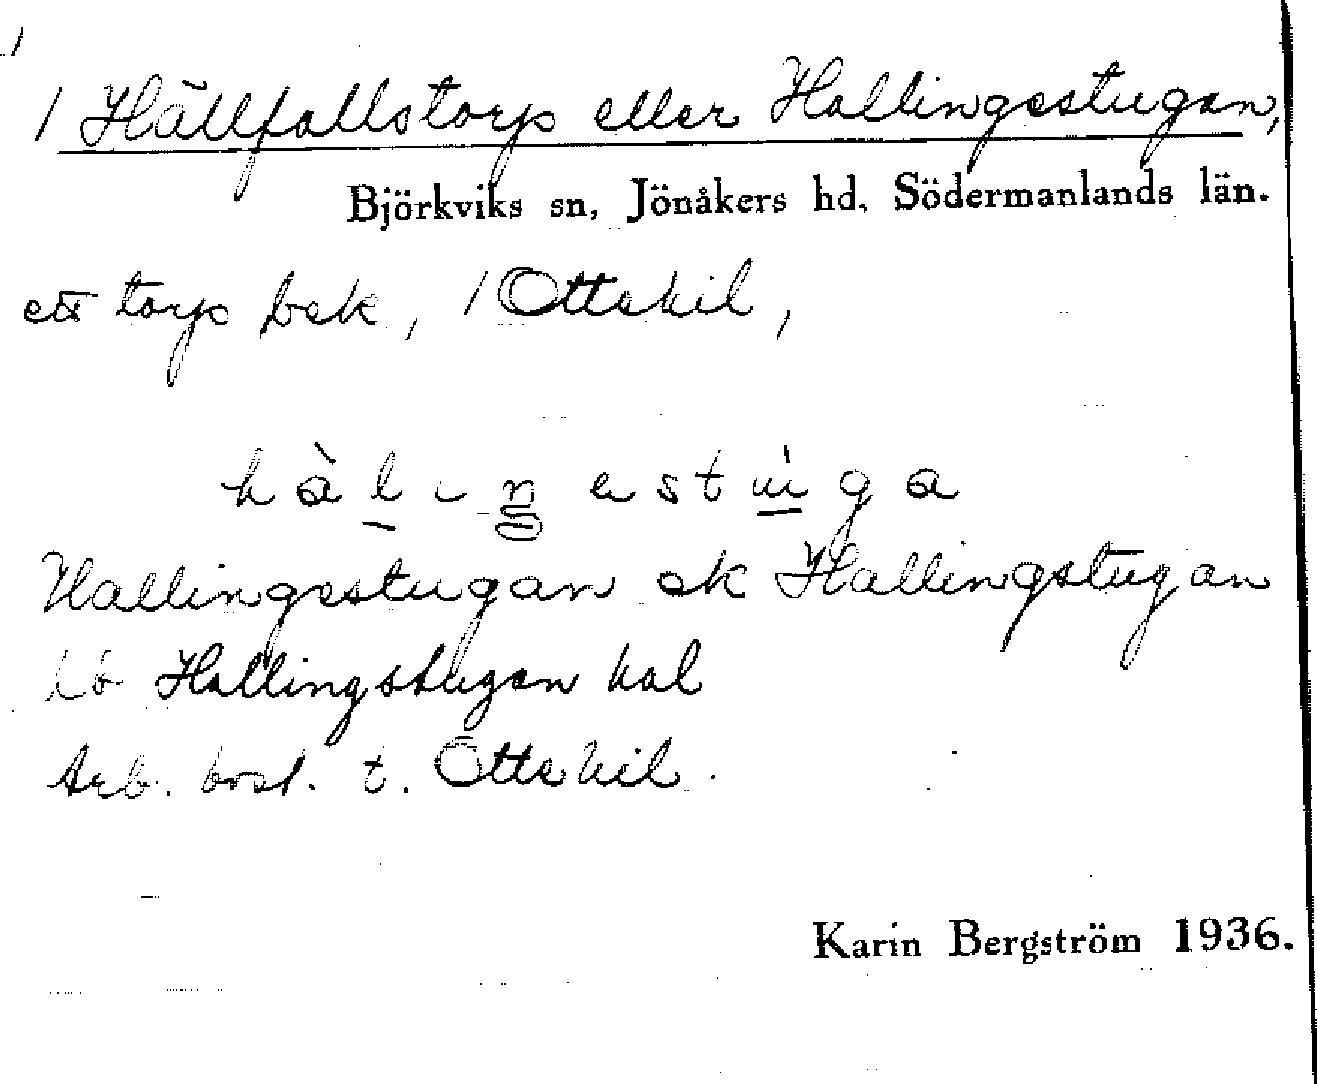 / Hällfallstorp eller Hallingestugan,
Björkviks sn, Jönåkers hd, Södermanlands län.
ett torp bek, / Ottekil,
hàlıŋestuga
Hallingestugan ek Hallingstugan
Hallingstugan kal
Arb. bost. t. Ottekil.
Karin Bergström 1936.